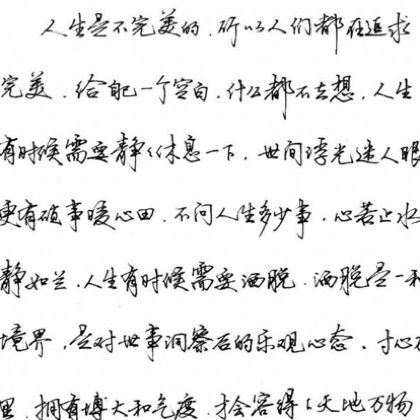 人生是不完美的.所以人们都在追求
完美.给自己一个空白.什么都不去想.人生
有时候需要静く休息一下.世间浮光迷人眼
更有破事暖心田.不问人生多少事.心若止水
静如兰.人生有时候需要洒脱.洒脱是一种
境界.是对世事洞察后的乐观心态.寸心不
里.拥有博大和气度.才会容得了天地万物